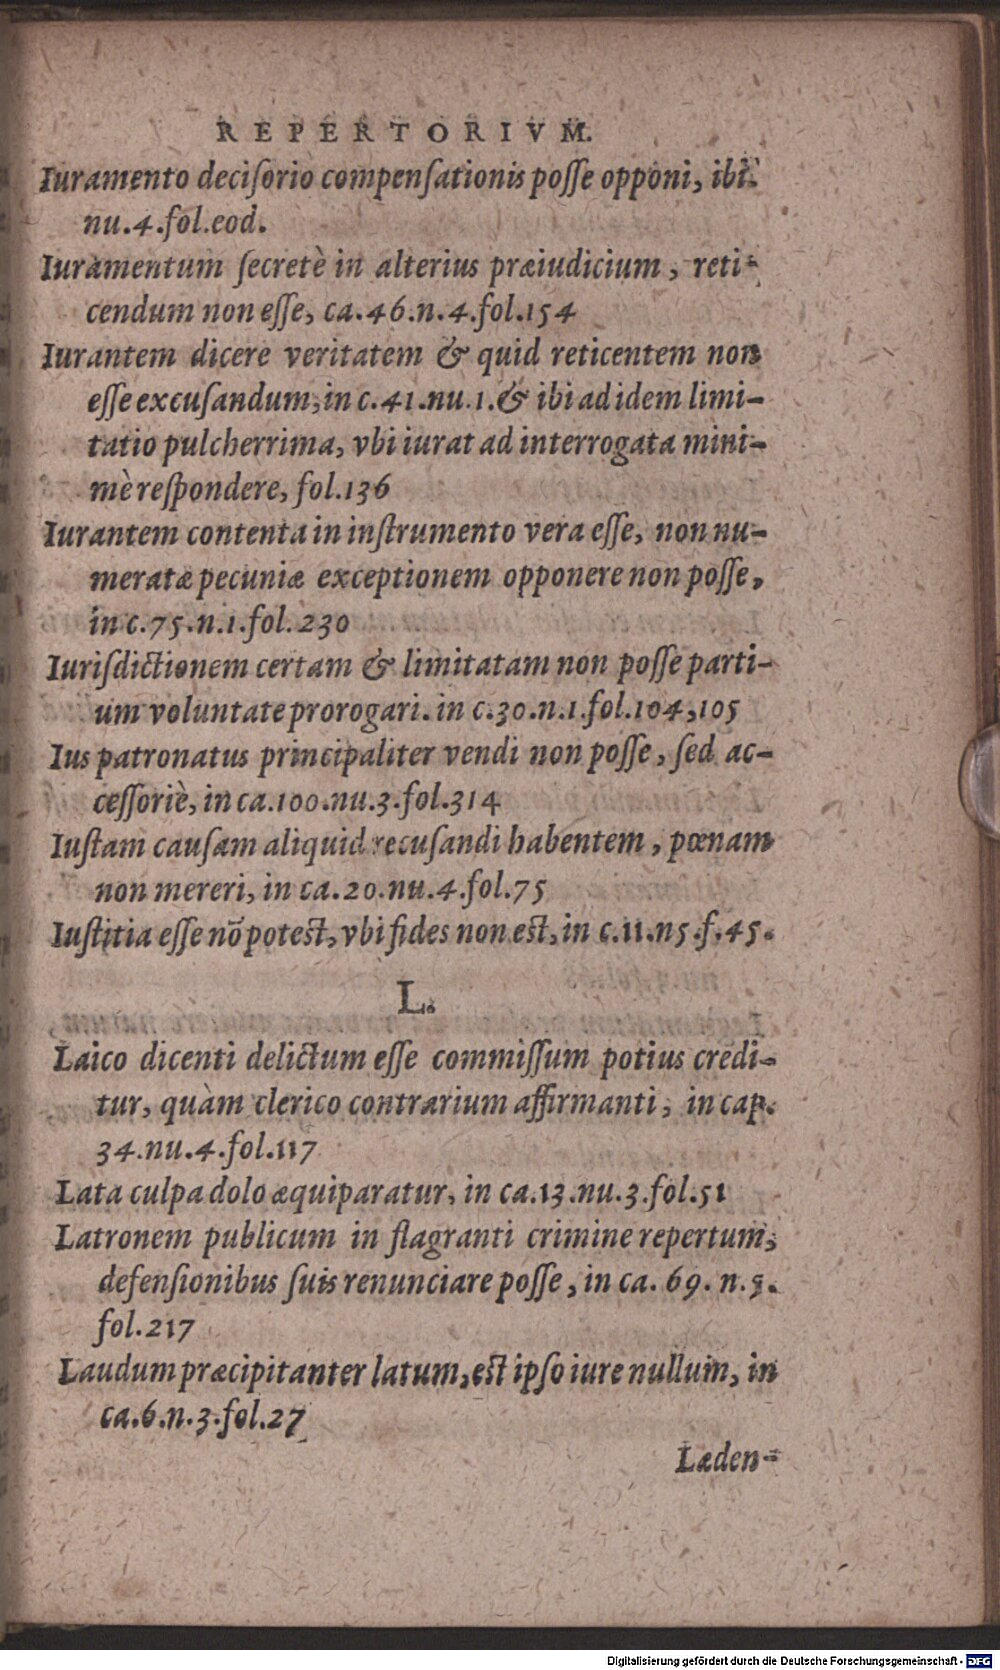 REPERTORIVM.
Iuramento deciſorio compenſationis poſſe opponi, ibi.
nu.4.fol.eod.
Iuramentum ſecretè in alterius præiudicium, reti-
cendum non eſſe, ca.46.n.4.fol.154
Iurantem dicere veritatem & quid reticentem non
eſſe excuſandum, in c.41.nu.1.& ibi ad idem limi-
tatio pulcherrima, vbi iurat ad interrogata mini-
mè reſpondere, fol.136
Iurantem contenta in inſtrumento vera eſſe, non nu-
meratæ pecuniæ exceptionem opponere non poſſe,
in c.75.n.1.fol.230
Iuriſdictionem certam & limitatam non poſſe parti-
um voluntate prorogari. in c.30.n.1.fol.104,105
Ius patronatus principaliter vendi non poſſe, ſed ac-
ceſſoriè, in ca.100.nu.3.fol.314
Iuſtam cauſam aliquid recuſandi habentem, pœnam
non mereri, in ca.20.nu.4.fol.75
Iuſtitia eſſe nõ poteſt, vbi fides non eſt, in c.11.n5.f.45.
L.
Laico dicenti delictum eſſe commiſſum potius credi-
tur, quàm clerico contrarium affirmanti, in cap.
34.nu.4.fol.117
Lata culpa dolo æquiparatur, in ca.13.nu.3.fol.51
Latronem publicum in flagranti crimine repertum,
defenſionibus ſuis renunciare poſſe, in ca. 69. n.
fol.217
Laudum præcipitanter latum, eſt ipſo iure nullum, in
ca.6.n.3.fol.27
Læden-
Digitalisierung gefördert durch die Deutsche Forschungsgemeinschaft - DFG